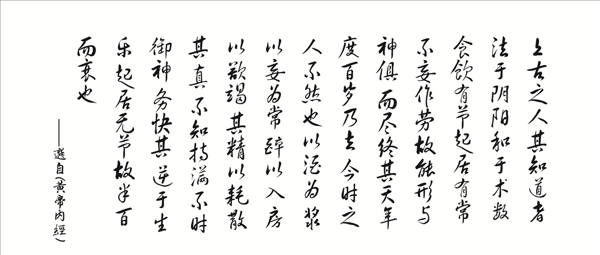 上古之人其知道者
法于阴阳和于术数
食饮有节起居有常
不妄作劳故能形与
神俱而尽终其天年
度百岁乃去今时之
人不然也以酒为浆
以妄为常醉以入房
以欲竭其精以耗散
其真不知持满不时
御神务快其逆于生
乐起居无节故半百
而衰也
——選自《黄帝内經》